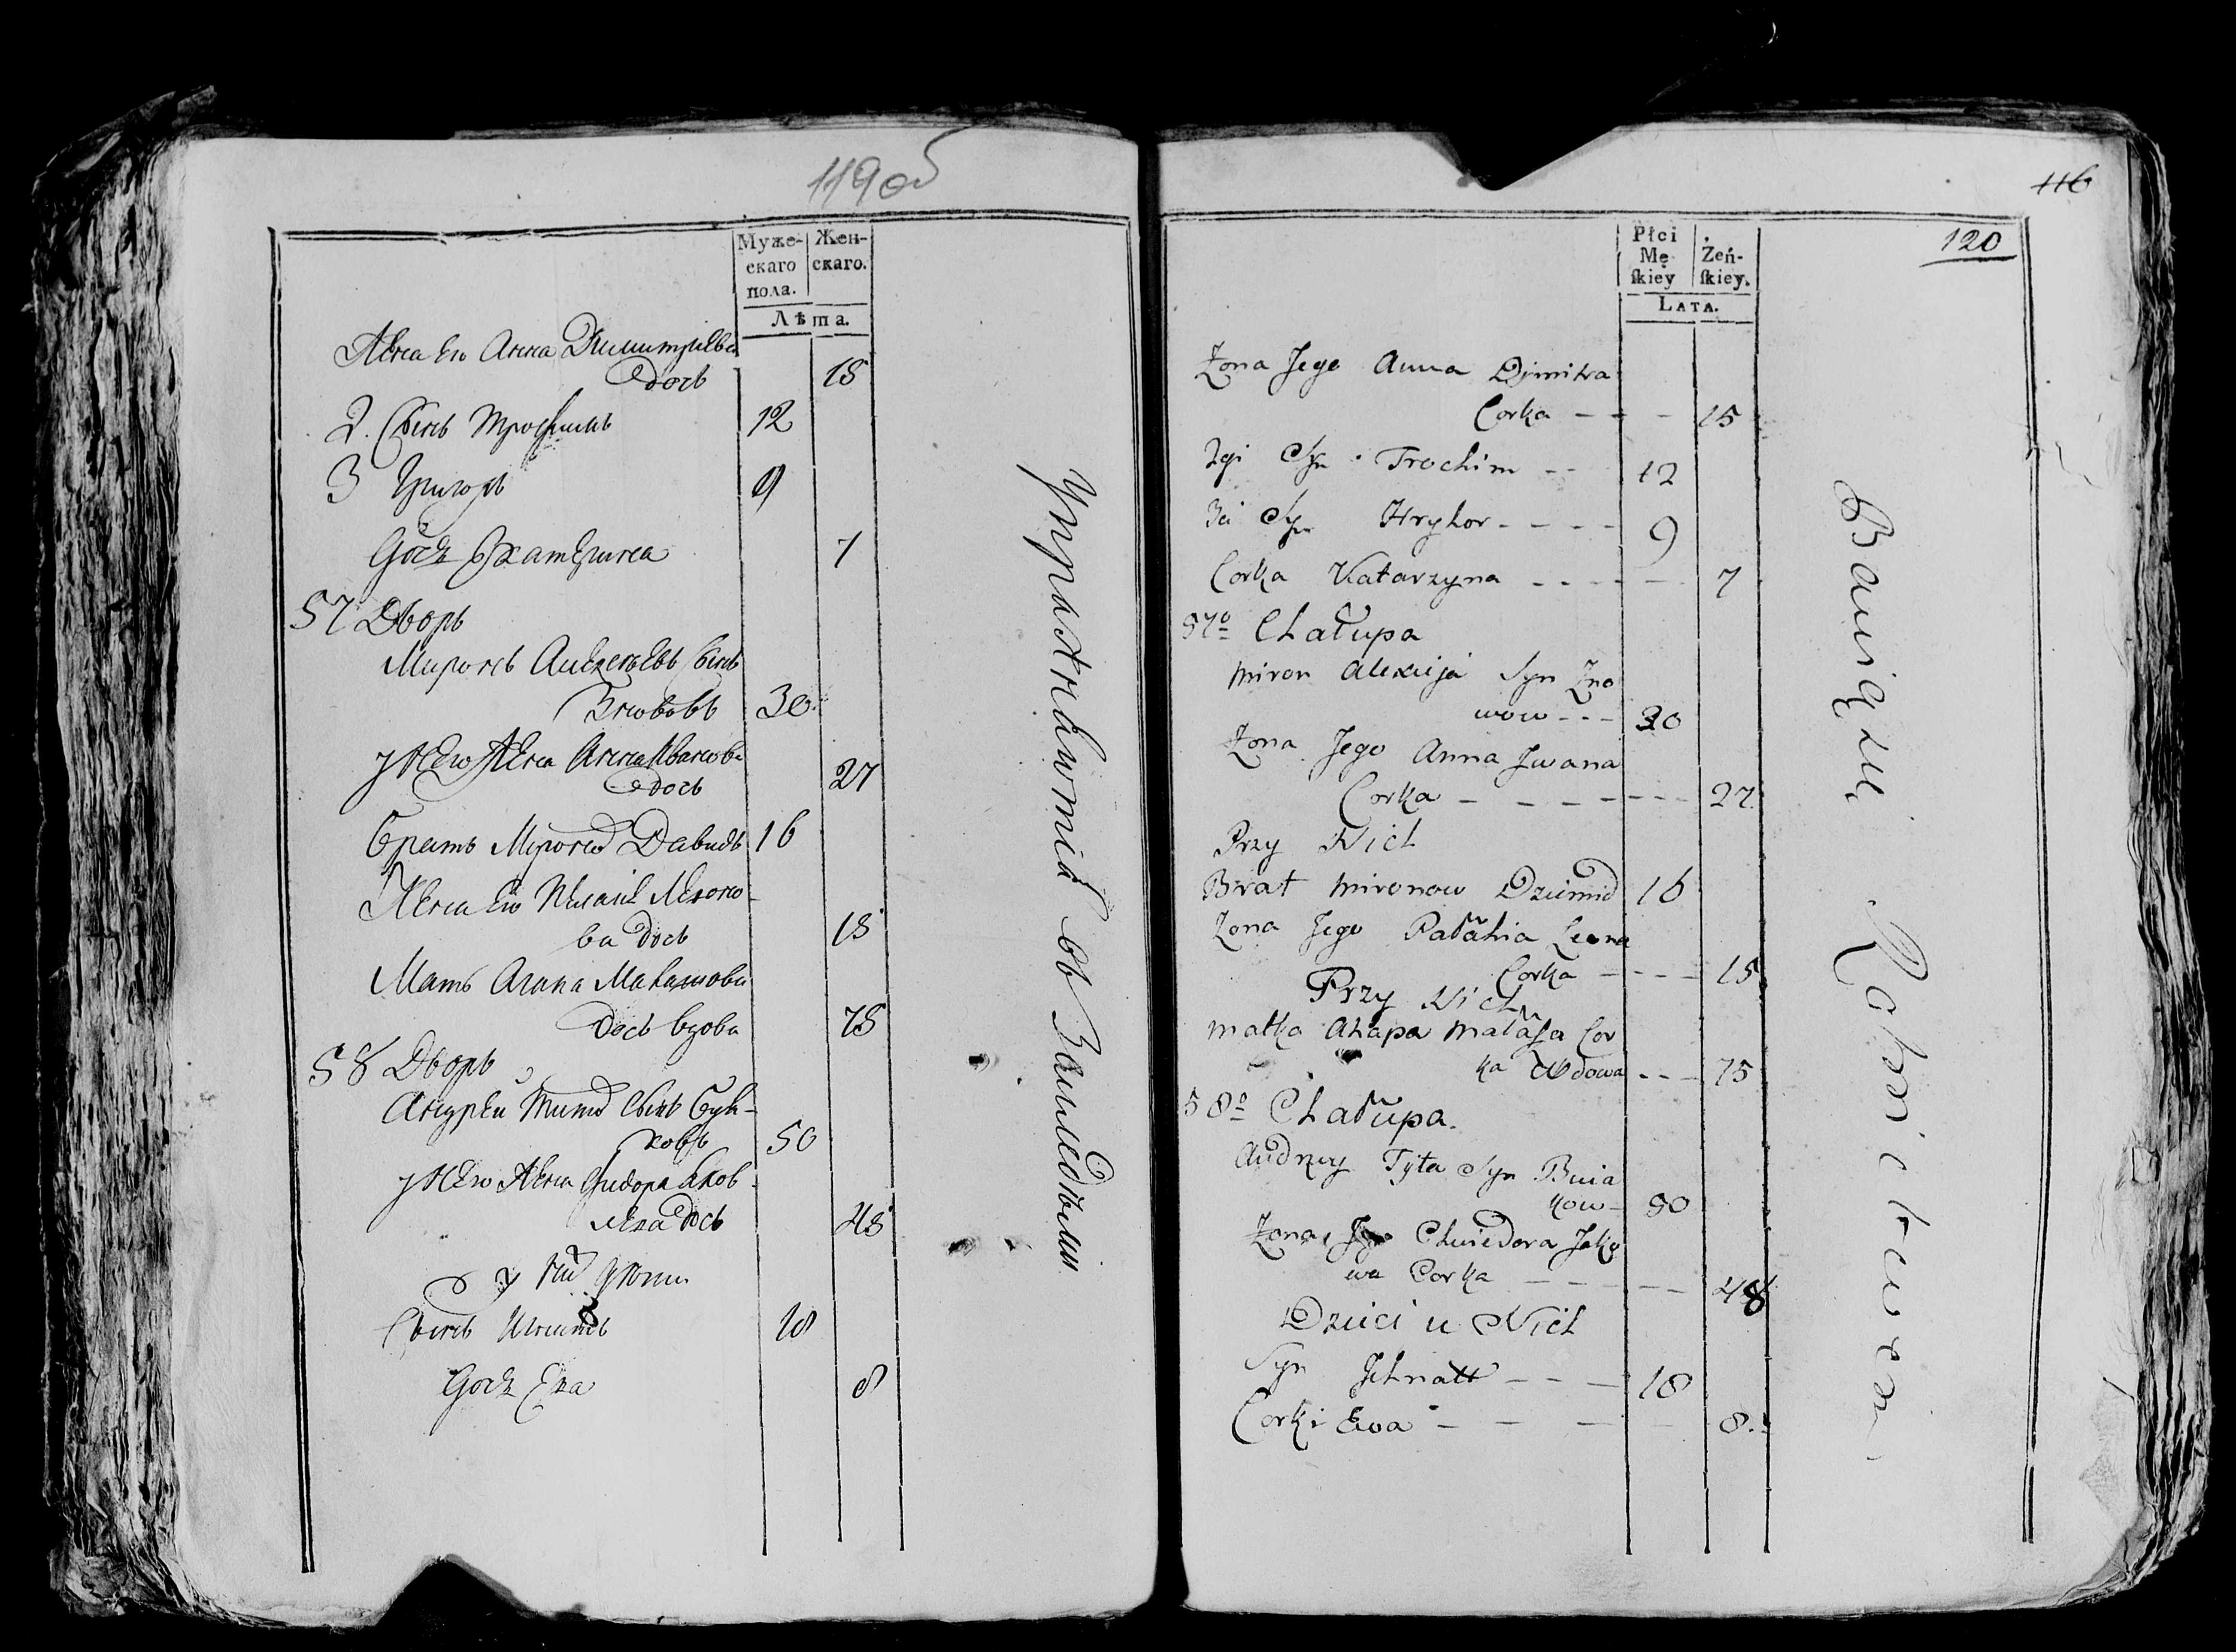 119об
Муже-
скаго
пола.
Жен-
скаго.
Лѣта.
Жена Его Анна Димитриева
дочь 15
2. Сынъ Трофимъ 12
3 Григорь 9
Дочь Екатерина 7
57 Дворъ
Миронъ Алексеевъ Сынъ
Знововъ 30
у Него Жена Анна Иванова
дочь 27
Братъ Миронов Давидъ 16
Жена Его Пелагея Леоно-
ва дочь 15
Мать Агапа Малашова
дочь вдова 75
58 Дворъ
Андрей Титов Сынъ Буя-
ковъ 50
у Него Жена Фидора Яков-
лева дочь 48
у Них Дети
Сынъ Игнатъ 18
Дочь Ева 8
Упражняютца въ Земледелии
116
120
Płci
Mę-
skiey
Żeń-
skiey.
LATA.
Żona Jego Anna Dymitra
Corka - - - 15
2gi Syn Trochim - - 12
3ci Syn Hryhor - - - - 9
Corka Katarzyna - - - - - 7
57º Chałupa
Miron Alexieja Syn Zno
wow - - - 30
Żona Jego Anna Jwana
Corka - - - - - - - 27
Przy Nich
Brat Mironow Dziemid 16
Żona Jego Pałahia Leona
Corka - - - - 15
Przy Nich
Matka Ahapa Małasza Cor
ka Wdowa - - - 75
58º Chałupa.
Andrzey Tyta Syn Buia
kow - 50
Żona Jego Chwiedora Jako
wa Corka - - - - 48
Dzieci u Nich
Syn Jhnatt - - - 18
Corki Ewa - - - - 8.
Bawią się Rolnictwem.